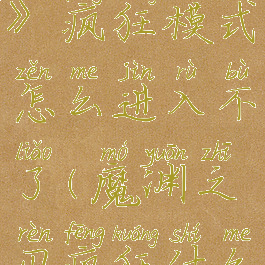 》疯狂模式
zěn me jìn rù bù
怎么进入不
liǎo mó yuān zhī
了(魔渊之
rèn fēng kuáng shí me
刃疯狂什么